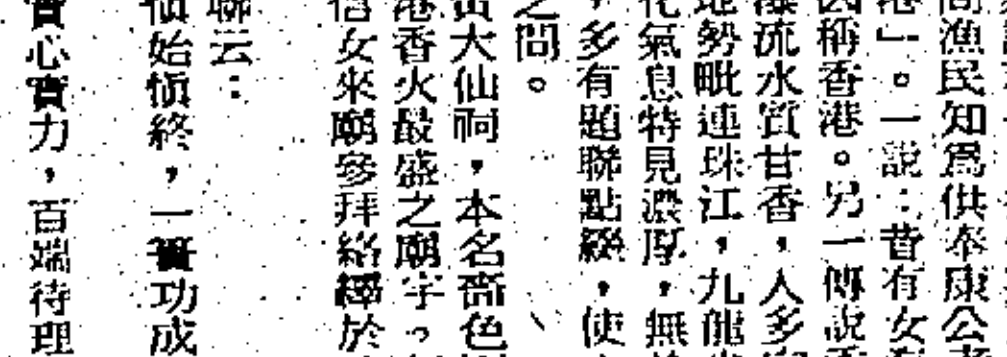 漁民知爲供奉康公
港」。一說：昔有女
稱香港。另一傳說
流水質甘香，人多
地勢毗連珠江，九龍
氣息特見濃厚，無
，多有題聯點綴，使
之間。
大仙祠，本名嗇色
港香火最盛之廟宇。
信女來廟參拜絡繹於
聯云：
慎始慎終，一簣功成
實心實力，百端待理